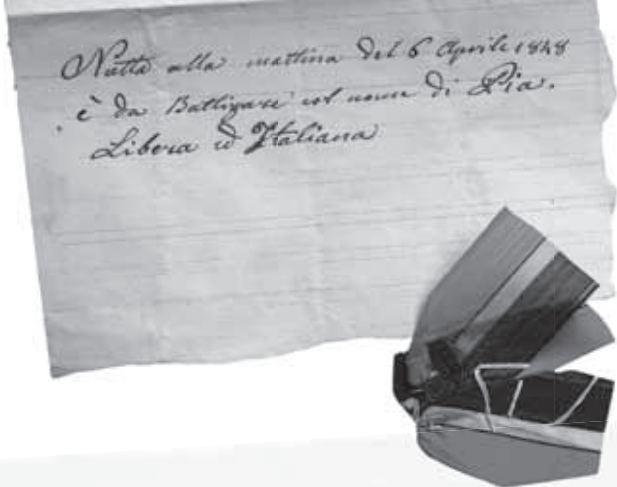 Natta alla mattina del 6 Aprile 1848
è da Battizare col nome di Pia.
Libera ed Italiana